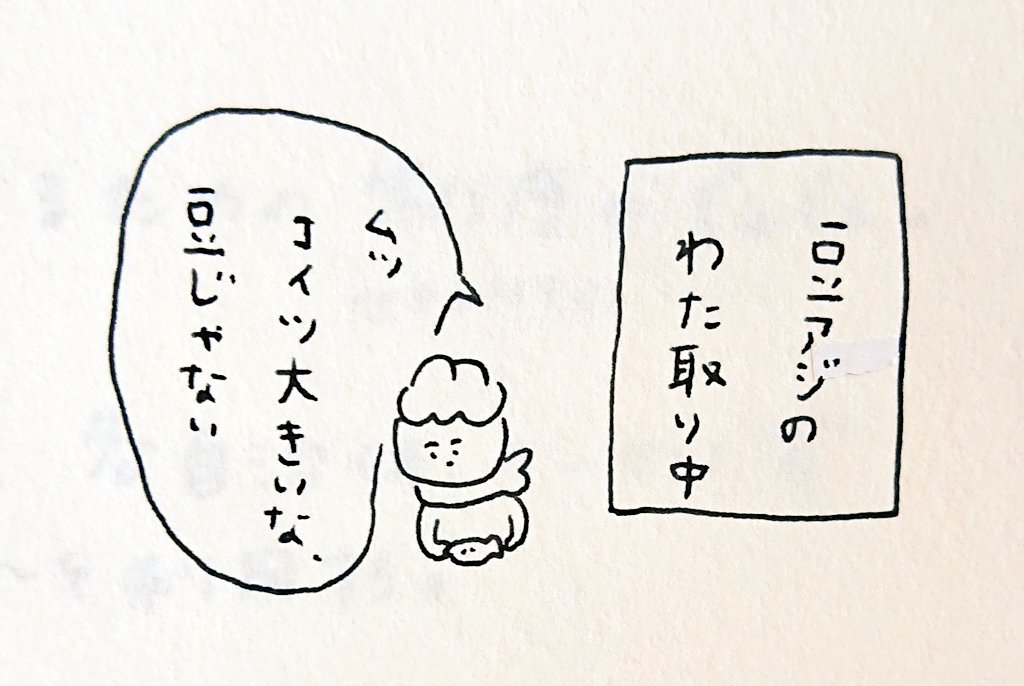 豆アジの
わた取り中
ムッ
コイツ大きいな、
豆じゃない